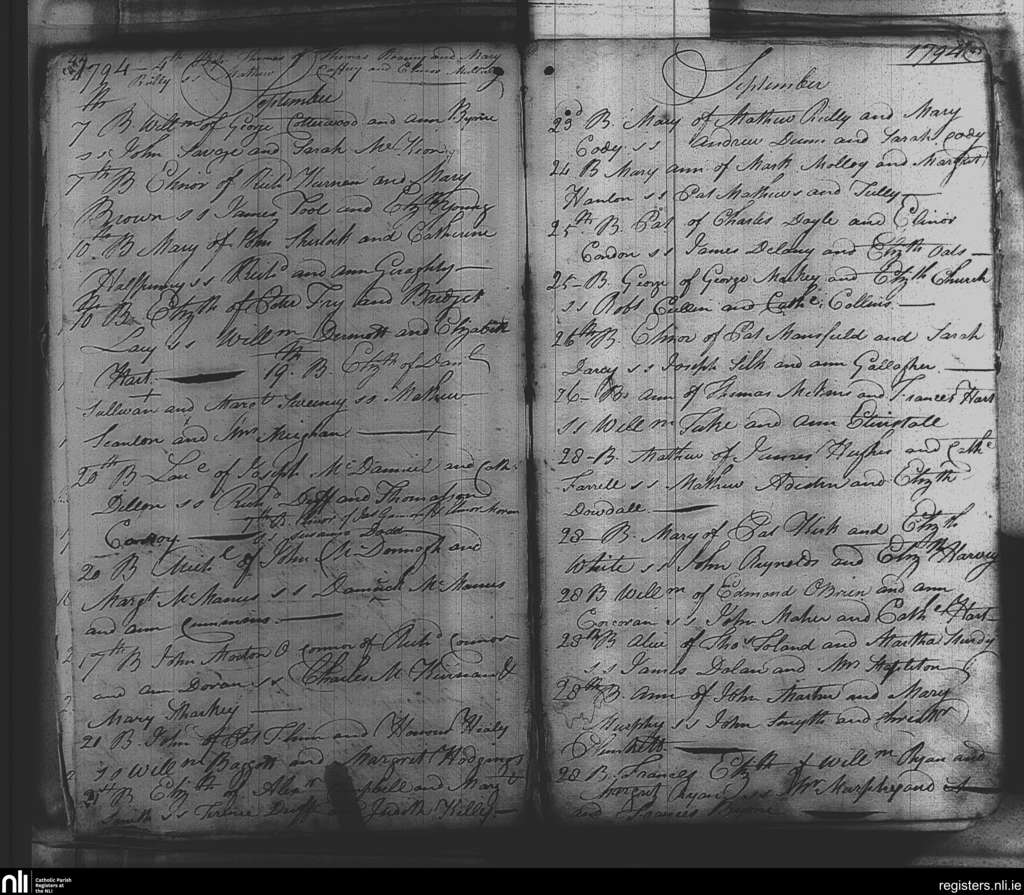 1794 – 4th Bp Thomas of Thomas and Mary
Reilly ss Mathew Caffry and Elinor
September
7th B Willm of George Collerwood and ann Byrne
ss John Savage and Sarah Mc
7th B Elinor of Richd and Mary
Brown ss James Tool and Elizth Young
10th B Mary of John Sherlock and Catherine
Halfpenny ss Richd and ann Geraghty –
10th B Elizth of Peter Fry and Bridget
Lacy ss Willm Dermott and Elizabeth
Hart. — 19th B. Elizth of Danl
Sullivan and Margt Sweeny ss Mathew
Scanlon and Mrs Meighan —
20th B of Joseph Mc Daniel and Cathe
Dillon ss Richd Duff and Thomasson
7th B. Elinor of Pat and Elinor Horan
Conroy — ss Susanna Dodd
20 B Michl of John Mc Donnogh and
Margt Mc Manus ss Dominick Mc Manus
and ann Cummins —
17th B John Morton O Connor of Richd Connor
and ann Doran ss Charles Mc Kiernan &
Mary Sharkey —
21 B John of Pat Flinn and Honour Healy
ss Willm Baggott and Margret Hodgings
21st B Elizth of Alexr Campbell and Mary
Smith ss Terence Duff and Judith Kelly –
1794
September
23d B. Mary of Mathew Reilly and Mary
Cody ss Andrew Dunn and Sarah Cody
24 B Mary ann of Mark Molloy and Margret
Hanlon ss Pat Mathews and Tully –
25th B. Pat of Charles Doyle and Elinor
Condon ss James Delany and Elizth Oats –
25 – B. George of George Markey and Elizth Church
ss Robt Cullin and Cathe Collins —
26th B. Elinor of Pat Mansfield and Sarah
Darcy ss Joseph Silk and ann Gallagher. —
26 – B ann of Thomas and Frances Hart
ss Willm Take and ann
28 – B. Mathew of James Hughes and Cathe
Farrell ss Mathew and Elizth
Dowdall. —
28 – B. Mary of Pat Kirk and Elizth
White ss John Reynolds and Elizth Harvey
28 B Willm of Edmond OBrien and ann
Corcoran ss John Maher and Cathe Hart
28th B Alice of Thos Toland and Martha
ss James Dolan and Mrs Appleton
28th B ann of John Martin and Mary
Murphy ss John Smyth and
Plunkett —
28 B. Frances Elizth of Willm Ryan and
Margret Ryan ss Wm Murphy and
and Frances Byrne
nli
Catholic Parish
Registers at
the NLI
registers.nli.ie